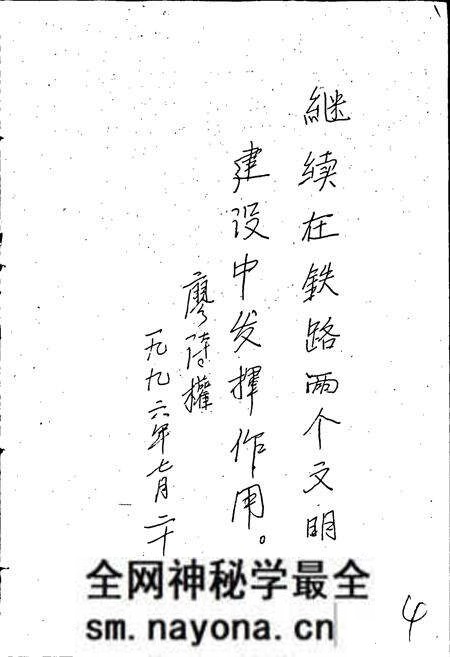 继续在铁路两个文明
建设中发挥作用。
廖诗權
一九九六年七月二十
全网神秘学最全
sm.nayona.cn
4